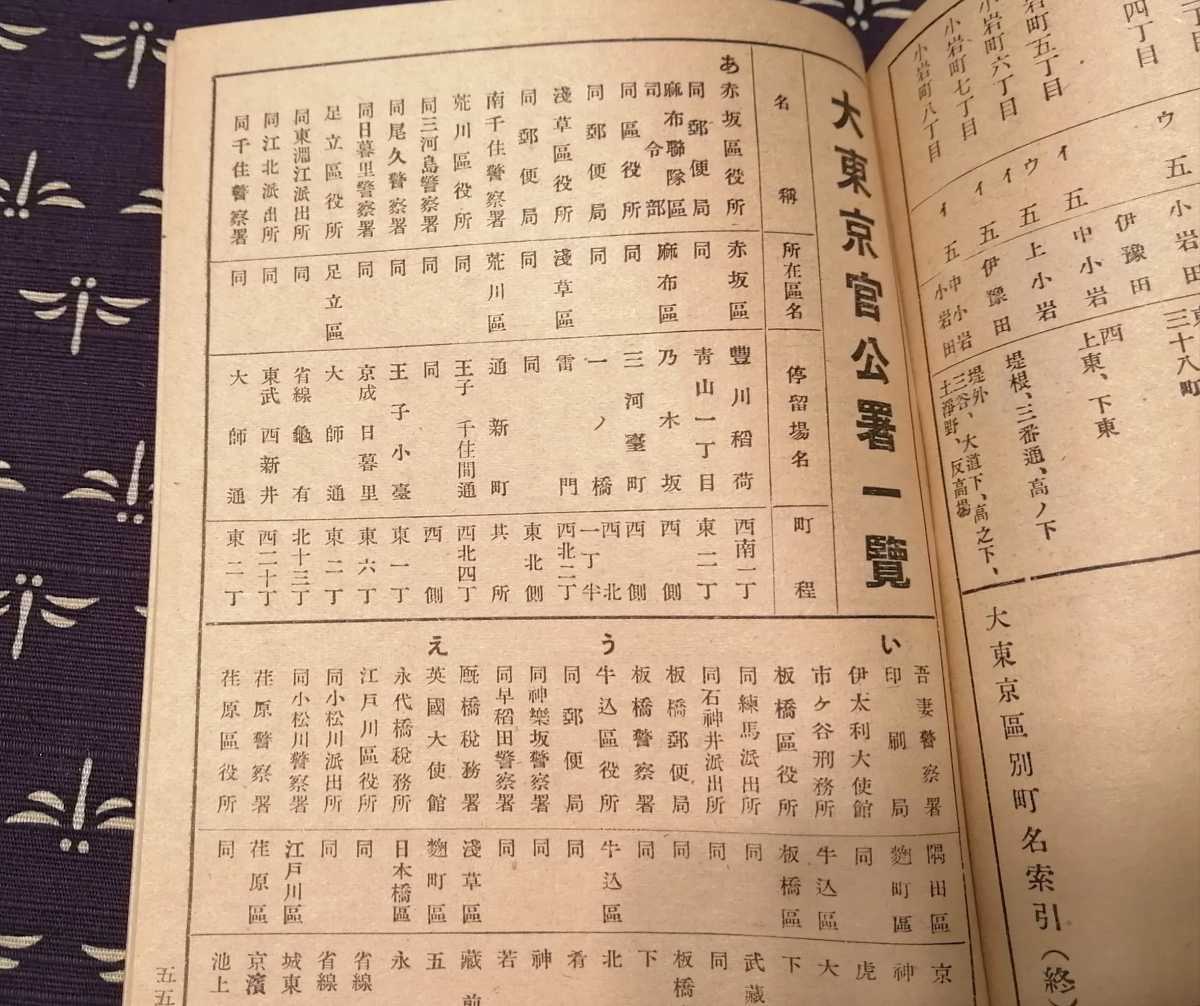 小岩町五丁目
小岩町六丁目
小岩町七丁目
小岩町八丁目
四丁目
ウ 五 小岩田
伊豫田
イ 五 中小岩
ウ 五 上小岩
イ 五 伊豫田
イ 五 中小岩 小岩田
三十八町
西
上東、下東
堤根、三番通、高ノ下
堤外、大道下、高之下、
三谷、
土淨野、反高場
大東京區別町名索引(終)
大東京官公署一覽
名稱 所在區名 停留場名 町程
あ
赤坂區役所 赤坂區 豐川稻荷 西南一丁
同郵便局 同 青山一丁目 東二丁
麻布聯隊區司令部 麻布區 乃木坂 西側
同區役所 同 三河臺町 西側
同郵便局 同 一ノ橋 西北一丁半
淺草區役所 淺草區 雷門 西北二丁
同郵便局 同 同 東北側
南千住警察署 荒川區 通新町 其所
荒川區役所 同 王子千住間通 西北四丁
同三河島警察署 同 同 西側
同尾久警察署 同 王子小臺 東一丁
同日暮里警察署 同 京成日暮里 東六丁
足立區役所 足立區 大師通 東二丁
同東淵江派出所 同 省線龜有 北十三丁
同江北派出所 同 東武西新井 西二十丁
同千住警察署 同 大師通 東二丁
吾妻警察署 隅田區 京
い
印刷局 麴町區 神
伊太利大使館 同 虎
市ケ谷刑務所 牛込區 大
板橋區役所 板橋區 下
同練馬派出所 同 武藏
同石神井派出所 同 同
板橋郵便局 同 板橋
板橋警察署 同 下
う
牛込區役所 牛込區 北
同郵便局 同 肴
同神樂坂警察署 同 神
同早稻田警察署 同 若
厩橋稅務署 淺草區 藏前
え
英國大使館 麴町區 五
永代橋稅務所 日本橋區 永
江戸川區役所 同 省線
同小松川派出所 同 省線
同小松川警察署 江戸川區 城東
荏原警察署 荏原區 京濱
荏原區役所 同 池上
五五